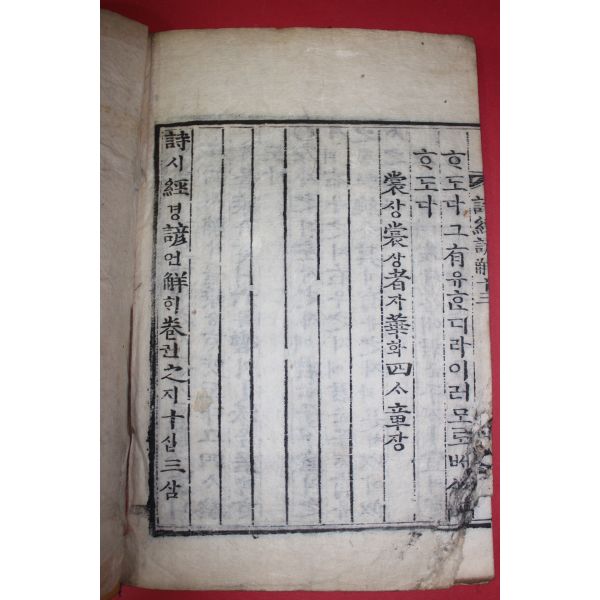 詩經諺解十三
ᄒᆞ도다그有유ᄒᆞᆫ디라이러모로
ᄒᆞ도다
裳상裳상者쟈華화四ᄉᆞ章쟝
詩시經경諺언解ᄒᆡ卷권之지十십三삼